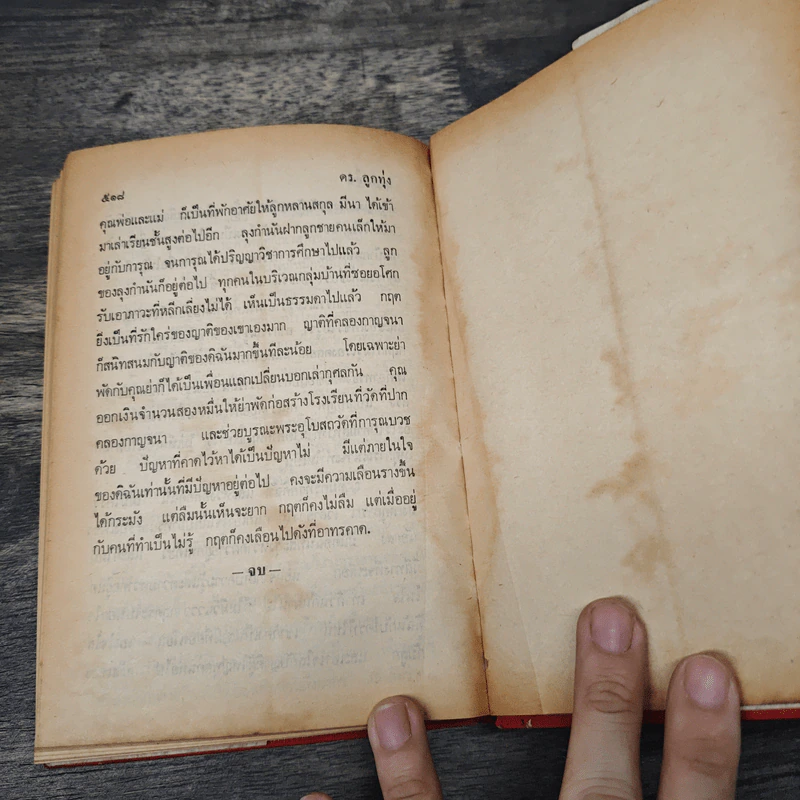 ๕๑๘
ดร. ลูกทุ่ง
คุณพ่อและแม่ ก็เป็นที่พักอาศัยให้ลูกหลานสกุล มีนา ได้เข้า
มาเล่าเรียนชั้นสูงต่อไปอีก ลุงกำนันฝากลูกชายคนเล็กให้มา
อยู่กับการุณ จนการุณได้ปริญญาวิชาการศึกษาไปแล้ว ลูก
ของลุงกำนันก็อยู่ต่อไป ทุกคนในบริเวณกลุ่มบ้านที่ซอยอโศก
รับเอาภาวะที่หลีกเลี่ยงไม่ได้ เห็นเป็นธรรมดาไปแล้ว กฤต
ยิ่งเป็นที่รักใคร่ของญาติของเขาเองมาก ญาติที่คลองกาญจนา
ก็สนิทสนมกับญาติของดิฉันมากขึ้นทีละน้อย โดยเฉพาะย่า
พัดกับคุณย่าก็ได้เป็นเพื่อนแลกเปลี่ยนบอกเล่ากุศลกัน คุณ
ออกเงินจำนวนสองหมื่นให้ย่าพัดก่อสร้างโรงเรียนที่วัดที่ปาก
คลองกาญจนา และช่วยบูรณะพระอุโบสถวัดที่การุณบวช
ด้วย ปัญหาที่คาดไว้หาได้เป็นปัญหาไม่ มีแต่ภายในใจ
ของดิฉันเท่านั้นที่มีปัญหาอยู่ต่อไป คงจะมีความเลือนรางขึ้น
ได้กระมัง แต่ลืมนั้นเห็นจะยาก กฤตก็คงไม่ลืม แต่เมื่ออยู่
กับคนที่ทำเป็นไม่รู้ กฤตก็คงเลือนไปดังที่อาทรคาด.
— จบ —